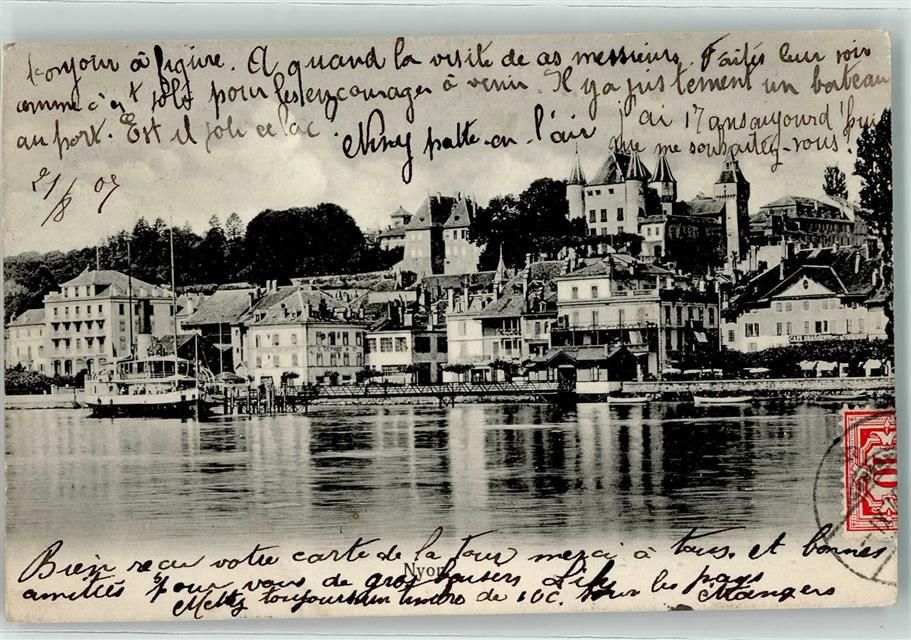 bonjour à figure. A quand la visite de ces messieurs. Faites leur voir
comme c'est joli pour les encourager à venir. Il y a justement un bateau
au port. Est il joli ce lac
Niny patte-en-l'air
j'ai 17 ans aujourd'hui
que me souhaitez-vous?
2/8 07
10
Bien reçu votre carte de la Tour merci à tous et bonnes
amitiés pour vous de gros baisers Lily
Nyon
Mettez toujours un timbre de 10c. pour les pays
étrangers